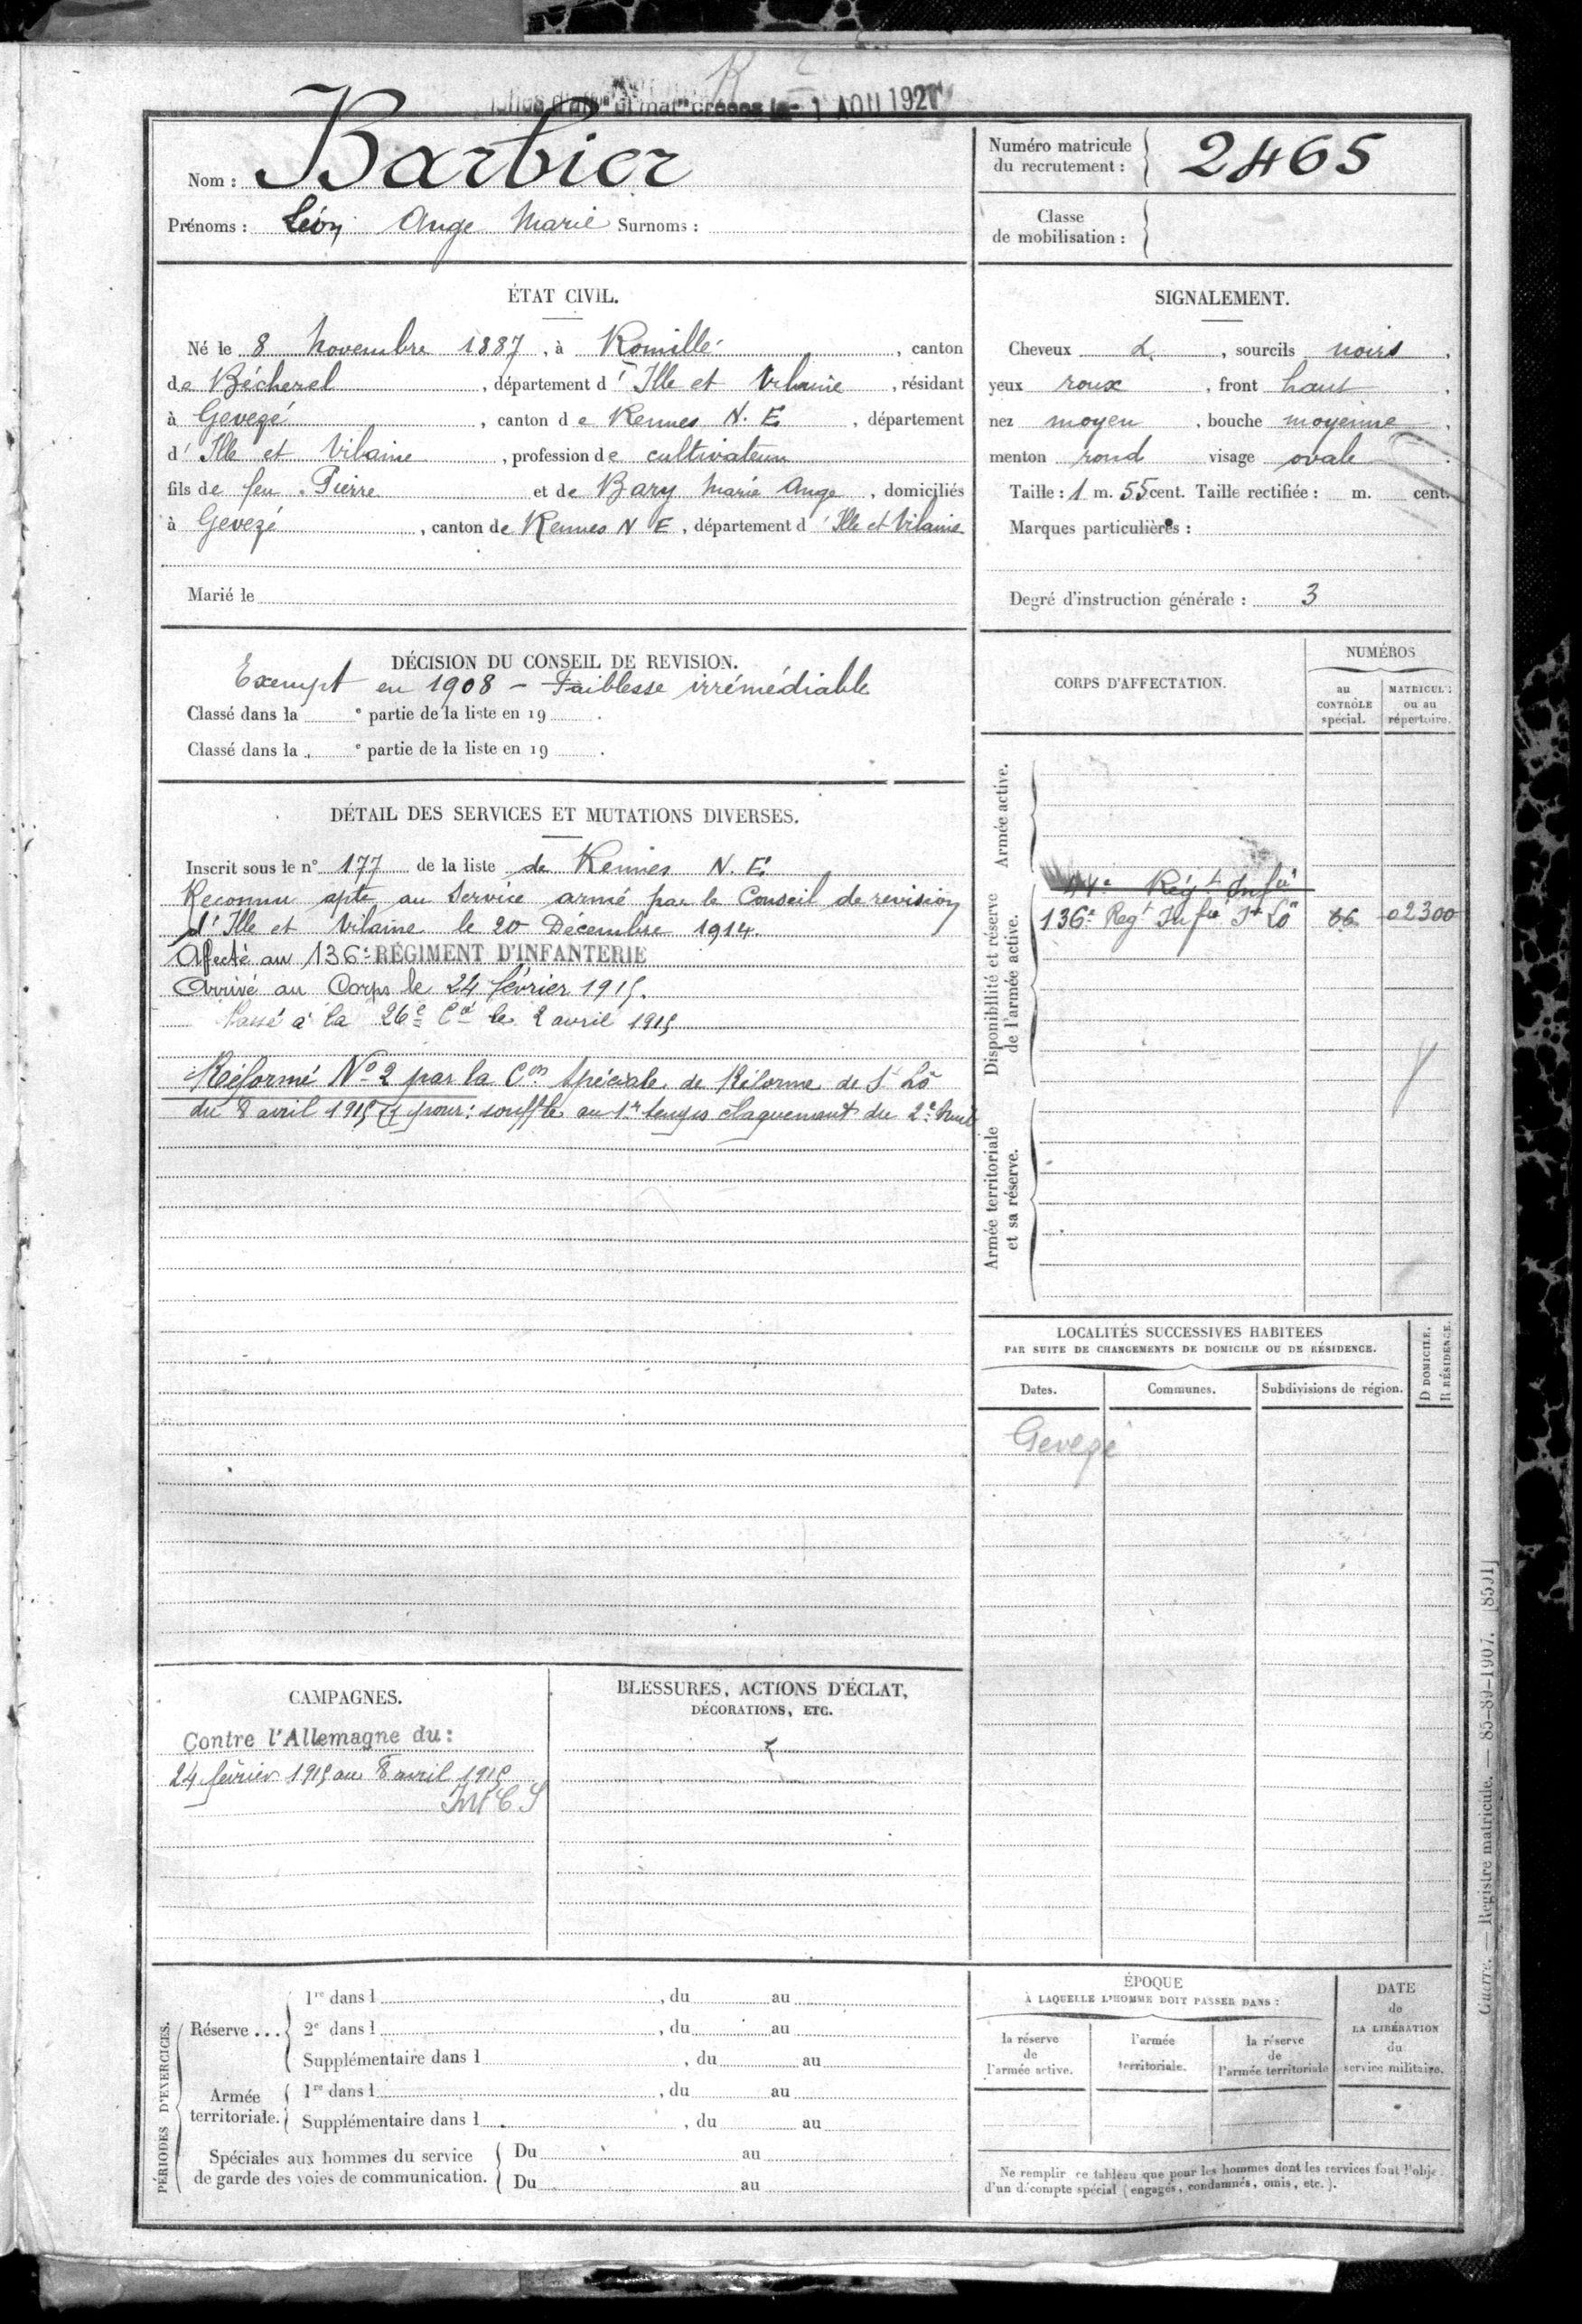 1 AOU 192
Nom : Barbier
Prénoms : Léon Ange Marie Surnoms :
Numéro matricule
du recrutement : 2465
Classe
de mobilisation :
ÉTAT CIVIL.
Né le 8 Novembre 1887, à Romillé, canton
de Bécherel, département d'Ille et Vilaine, résidant
à Gevezé, canton de Rennes N. E., département
d'Ille et Vilaine, profession de cultivateur
fils de feu Pierre et de Bary Marie Ange, domiciliés
à Gevezé, canton de Rennes N E, département d'Ille et Vilaine
Marié le
SIGNALEMENT.
Cheveux, sourcils noirs,
yeux roux, front haut,
nez moyen, bouche moyenne,
menton rond visage ovale.
Taille : 1 m. 55 cent. Taille rectifiée : m. cent.
Marques particulières :
Degré d'instruction générale : 3
DÉCISION DU CONSEIL DE REVISION.
Exempt en 1908 - Faiblesse irrémédiable
Classé dans la e partie de la liste en 19 .
Classé dans la e partie de la liste en 19 .
DÉTAIL DES SERVICES ET MUTATIONS DIVERSES.
Inscrit sous le n° 177 de la liste de Rennes N. E.
Reconnu apte au Service armé par le Conseil de revision
d'Ille et Vilaine le 20 Décembre 1914.
Affecté au 136e RÉGIMENT D'INFANTERIE
Arrivé au Corps le 24 février 1915.
Passé à la 26e Cie le 2 avril 1915
Réformé No 2 par la Con Spéciale de Réforme de St Lô
du 8 avril 1915 pour : souffle au 1er temps claquement du 2e bruit
CORPS D'AFFECTATION.
NUMÉROS
au
CONTRÔLE
spécial.
MATRICULE
ou au
répertoire.
Armée active.
Disponibilité et réserve
de l'armée active.
Régt Infie
136e Regt Infie St Lô 66 02300
Armée territoriale
et sa réserve.
LOCALITÉS SUCCESSIVES HABITEES
PAR SUITE DE CHANGEMENTS DE DOMICILE OU DE RÉSIDENCE.
Dates.
Communes.
Subdivisions de région.
D DOMICILE.
R RÉSIDENCE.
Gevezé
CAMPAGNES.
Contre l'Allemagne du :
24 février 1915 au 8 avril 1915
BLESSURES, ACTIONS D'ÉCLAT,
DÉCORATIONS, ETC.
PÉRIODES D'EXERCICES.
Réserve ...
1re dans l , du au
2e dans l , du au
Supplémentaire dans l , du au
Armée
territoriale.
1re dans l , du au
Supplémentaire dans l , du au
Spéciales aux hommes du service
de garde des voies de communication.
Du au
Du au
ÉPOQUE
À LAQUELLE L'HOMME DOIT PASSER DANS :
la réserve
de
l'armée active.
l'armée
territoriale.
la réserve
de
l'armée territoriale
DATE
de
LA LIBÉRATION
du
service militaire.
Ne remplir ce tableau que pour les hommes dont les services font l'obje
d'un décompte spécial (engagés, condamnés, omis, etc.).
Guerre. — Registre matricule. — 85-89-1907. [8591]